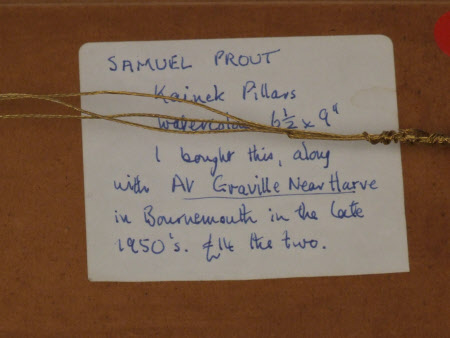 SAMUEL PROUT
Kainek Pillars
Watercolour 6½ x 9"
I bought this, along
with At Graville Near Harve
in Bournemouth in the late
1950's. £14 the two.